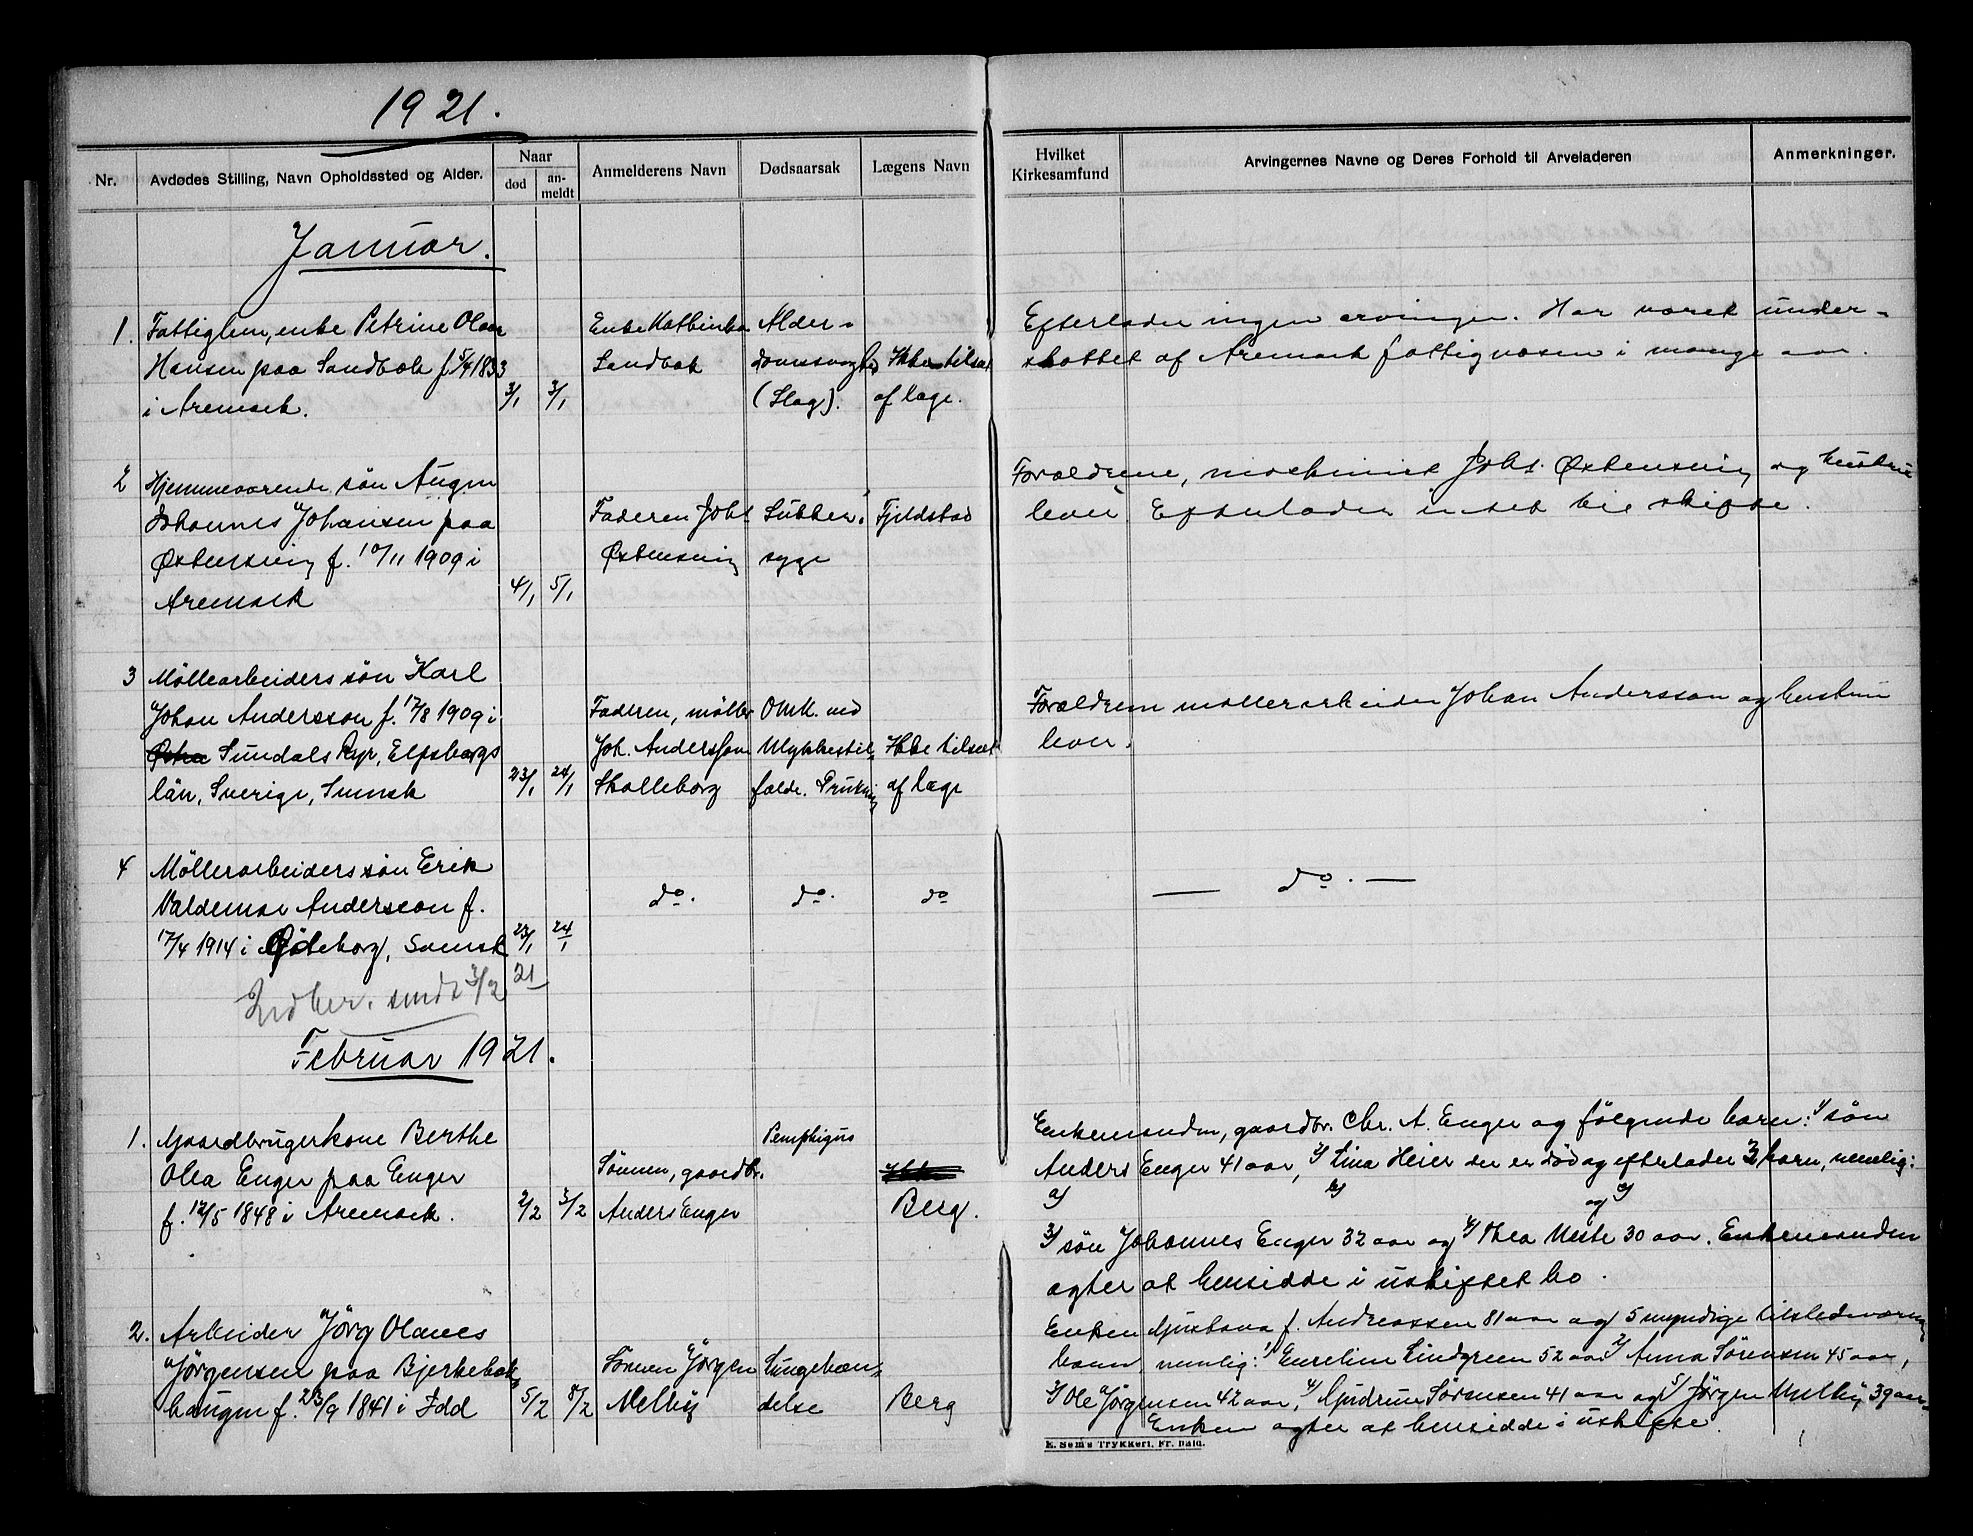 1921.
Nr.
Avdødes Stilling, Navn Opholdssted og Alder.
Naar
død
an-
meldt
Anmelderens Navn
Dødsaarsak
Lægens Navn
Hvilket
Kirkesamfund
Arvingernes Navne og Deres Forhold til Arveladeren
Anmerkninger.
Januar.
1. Fattiglem, enke Petrine Olava
Hansen paa Sandbæk f. 5/4 1833
i Aremark.
3/1 3/1
Enke Kathinka
Sandbæk
Alder-
domssvaghed
(Slag).
Ikke tilset
af læge.
Efterlader ingen arvinger. Har været under-
støttet af Aremark fattigvæsen i mange aar.
2 Hjemmeværende søn Augen
Johannes Johansen paa
f. 10/11 1909 i
Aremark
4/1 5/1
Faderen Johs.
Sukker-
syge
Fjeldstad
Forældrene, maskinist Johs. og hustru
lever. Efterlader intet til skifte.
3 Møllearbeiders søn Karl
Johan Andersson f. 17/8 1909 i
Sundals Ryr, Elfsborgs
län, Sverige, Svensk
23/1 24/1
Faderen, møller
Joh. Andersson
Skolleborg
Omk. ved
Ulykkestil-
fælde. Drukning
Ikke tilset
af læge
Forældrene møllerarbeider Johan Andersson og hustru
lever.
4 Møllerarbeiders søn Erik
Valdemar Andersson f.
17/4 1914 i Göteborg, Svensk
23/1 24/1
do.
do.
do
— do. —
Indber. sendt 3/2 21
Februar 1921.
1. Gaardbrugerkone Berthe
Olea Enger paa Enger
f. 12/5 1848 i Aremark.
2/2 3/2
Sønnen, gaardbr.
Anders Enger
Pemphigus
Berg.
Enkemanden, gaardbr. Chr. A. Enger og følgende barn: 1/ søn
Anders Enger 41 aar, 2/ Lina Heier der er død og efterlader 3 barn, nemlig:
a/ b/ og c/
3/ søn Johannes Enger 32 aar og 4/ Thea 30 aar. Enkemanden
agter at hensidde i uskiftet bo.
2. Arbeider Jørg Olaves
Jørgensen paa Bjerkebæk-
haugen f. 23/9 1841 i Idd
5/2 8/2
Sønnen Jørgen
Melby
Lungebæn-
delse
Berg
Enken Gustava f. Andreassen 81 aar og 5 myndige tilstedeværende
barn nemlig: 1/ Lindgreen 52 aar 2/ Anna Sørensen 45 aar,
3/ Ole Jørgensen 42 aar, 4/ Gudrun Sørensen 41 aar og 5/ Jørgen Melby 39 aar.
Enken agter at hensidde i uskifte.
E. Sems Trykkeri, Fr. hald.